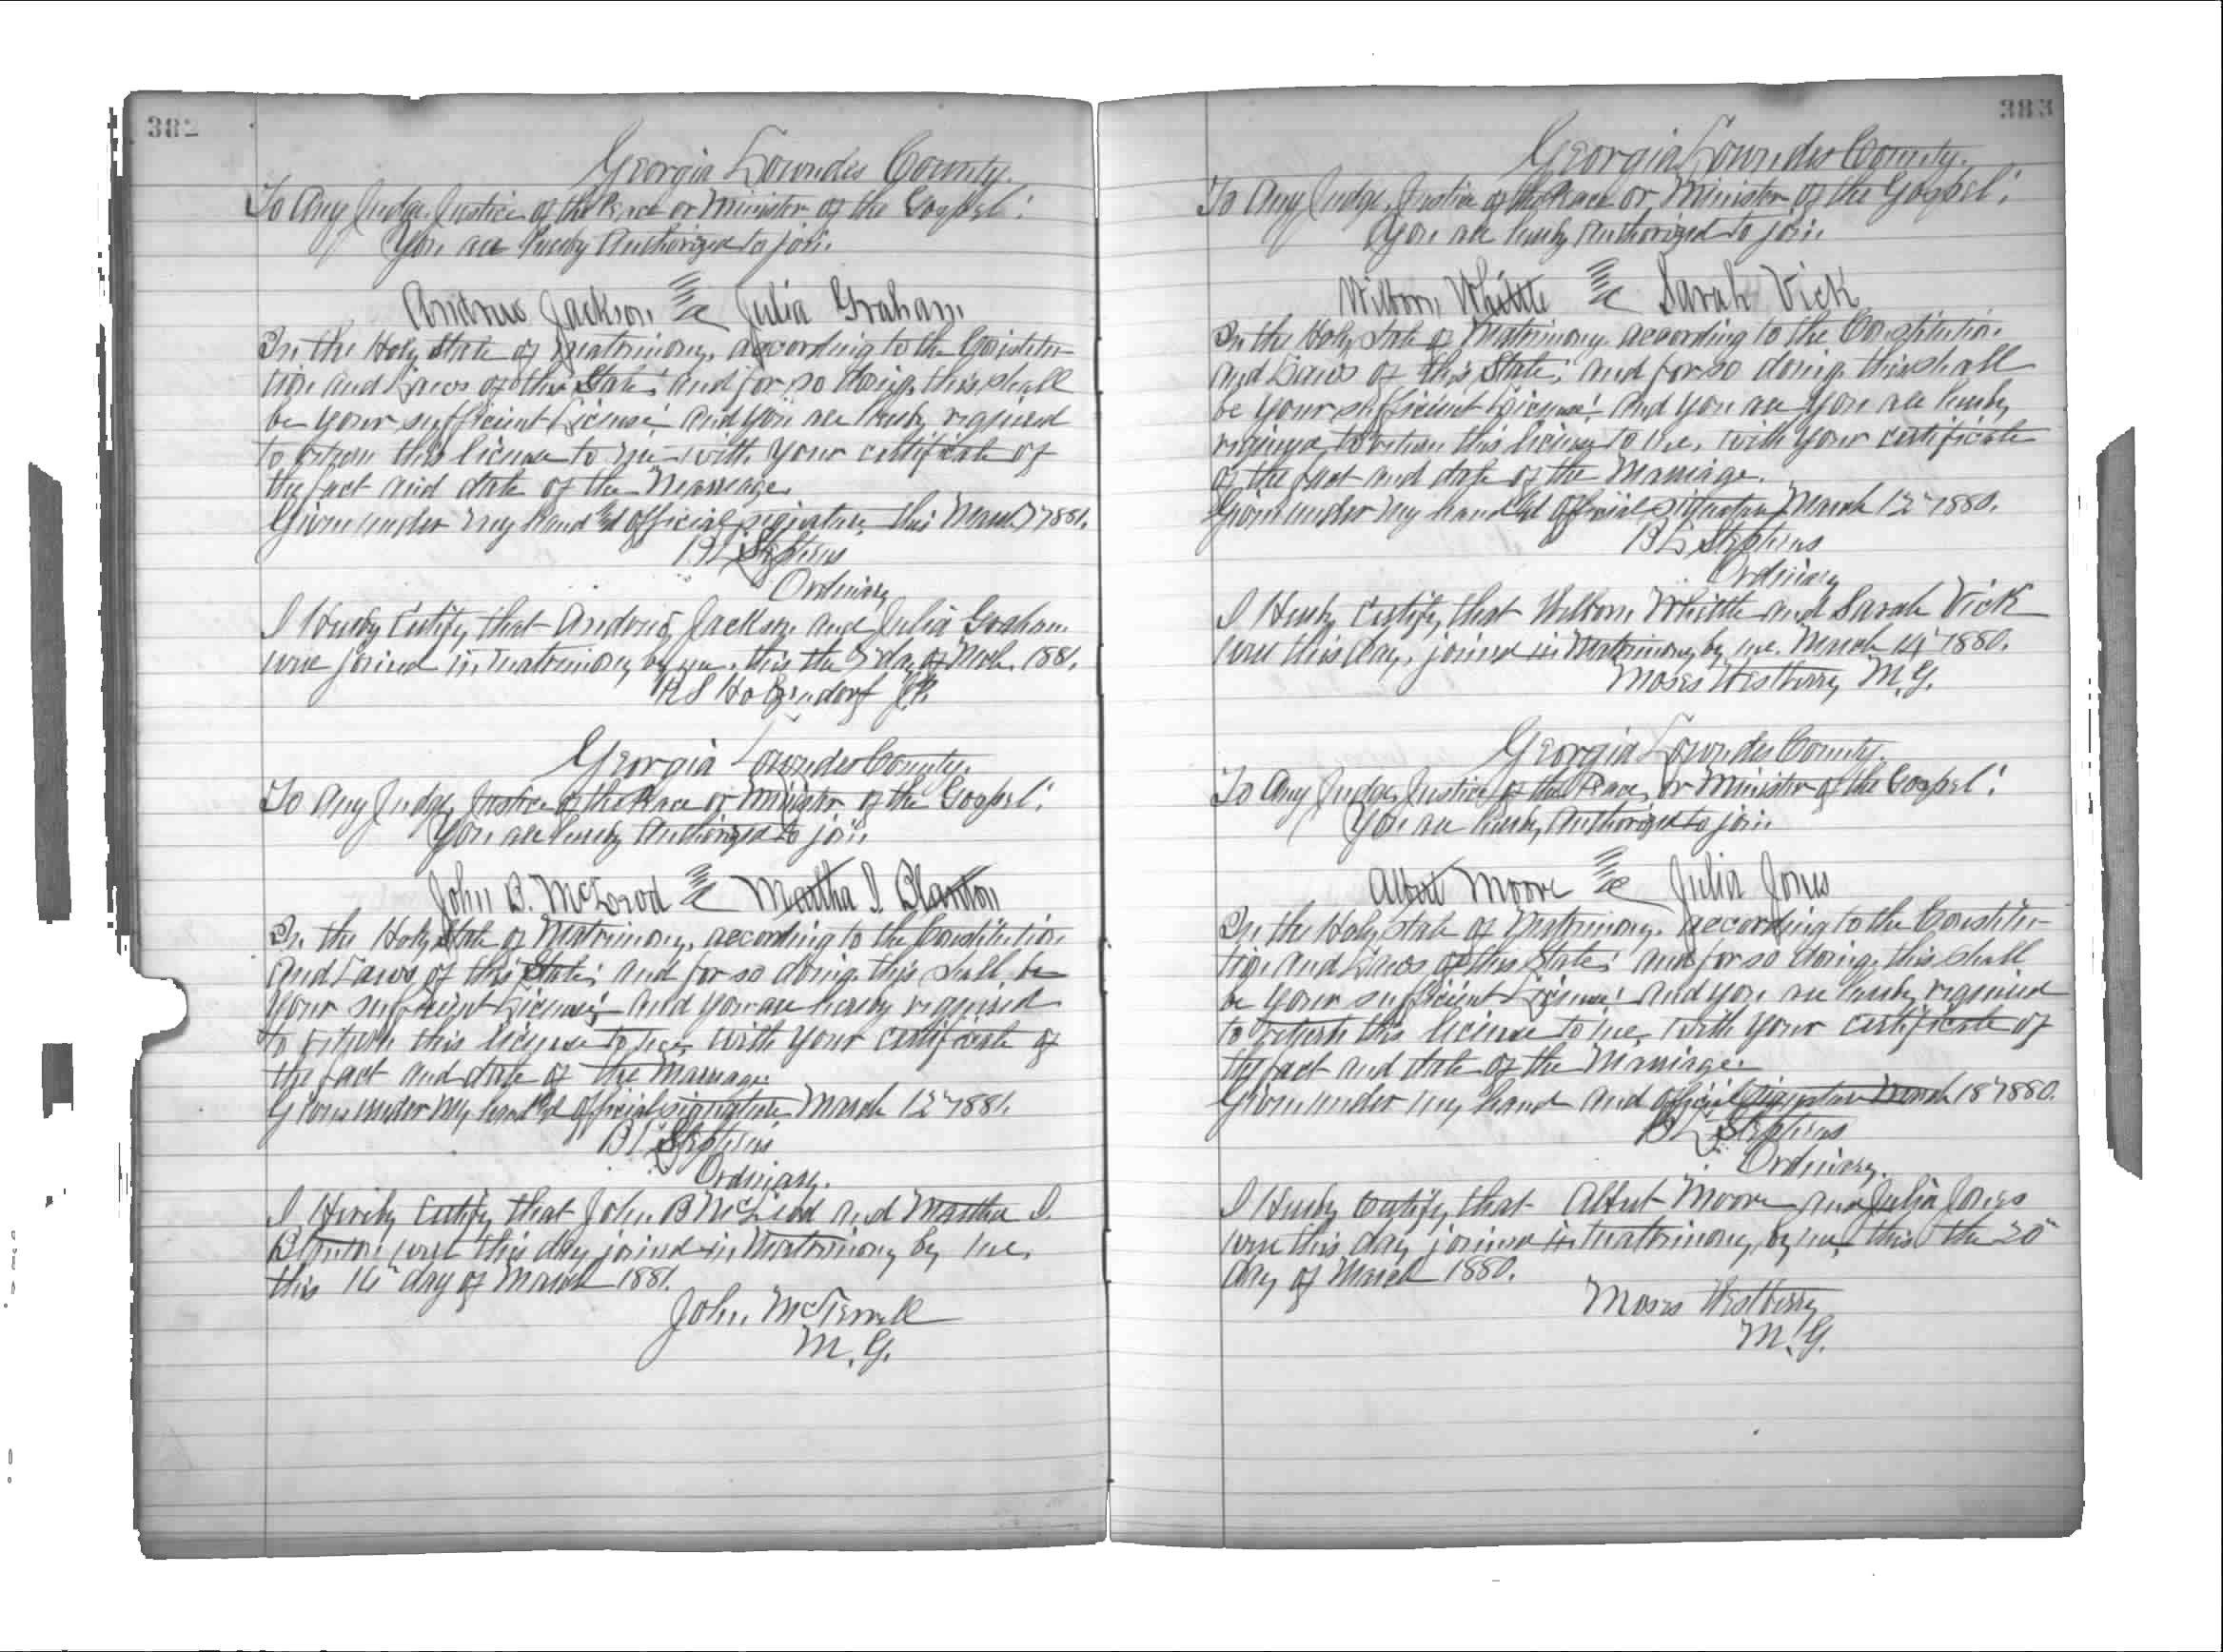 382
Georgia Lowndes County.
To Any Judge, Justice of the Peace or Minister of the Gospel:
You are hereby Authorized to join
Andrew Jackson & Julia Graham
In the Holy State of Matrimony, according to the Constitu-
tion and Laws of this State; and for so doing, this shall
be your sufficient License; and you are hereby required
to return this license to me with your certificate of
the fact and date of the Marriage.
Given under my hand and official signature, this March 1881.
B L Stephens
Ordinary
I Hereby Certify that Andrew Jackson and Julia Graham
were joined in matrimony by me, this the day of Mch. 1881.
R S Holzendorf J.P.
Georgia Lowndes County.
To Any Judge, Justice of the Peace or Minister of the Gospel:
You are hereby Authorized to join
John B. McLeod & Martha I. Blanton
In the Holy State of Matrimony, according to the Constitution
and Laws of this State; and for so doing, this shall be
your sufficient License; and you are hereby required
to return this license to me, with your certificate of
the fact and date of the Marriage.
Given under my hand and official signature March 12" 1881.
B L Stephens
Ordinary.
I Hereby Certify that John B McLeod and Martha I.
Blanton were this day joined in Matrimony by me,
this day of March 1881.
John
M. G.
383
Georgia Lowndes County.
To Any Judge, Justice of the Peace or Minister of the Gospel:
You are hereby Authorized to join
Wilborn Whittle & Sarah Vick
In the Holy State of Matrimony, according to the Constitution
and Laws of this State; and for so doing this shall
be your sufficient License; and you are you are hereby
required to return this license to me, with your certificate
of the fact and date of the Marriage.
Given under my hand and official signature March 12" 1880.
B L Stephens
Ordinary
I Hereby Certify, that Wilborn Whittle and Sarah Vick
were this day, joined in Matrimony by me. March 14" 1880.
Moses Westberry M. G.
Georgia Lowndes County.
To Any Judge, Justice of the Peace, or Minister of the Gospel:
You are hereby Authorized to join
Albert Moore & Julia Jones
In the Holy State of Matrimony, according to the Constitu-
tion and Laws of this State; and for so doing, this shall
be your sufficient License; and you are hereby required
to return this license to me, with your certificate of
the fact and date of the Marriage.
Given under my hand and official signature March 18" 1880.
B L Stephens
Ordinary.
I Hereby Certify, that Albert Moore and Julia Jones
were this day joined in Matrimony, by me, this the 20"
day of March 1880.
Moses Westberry
M. G.